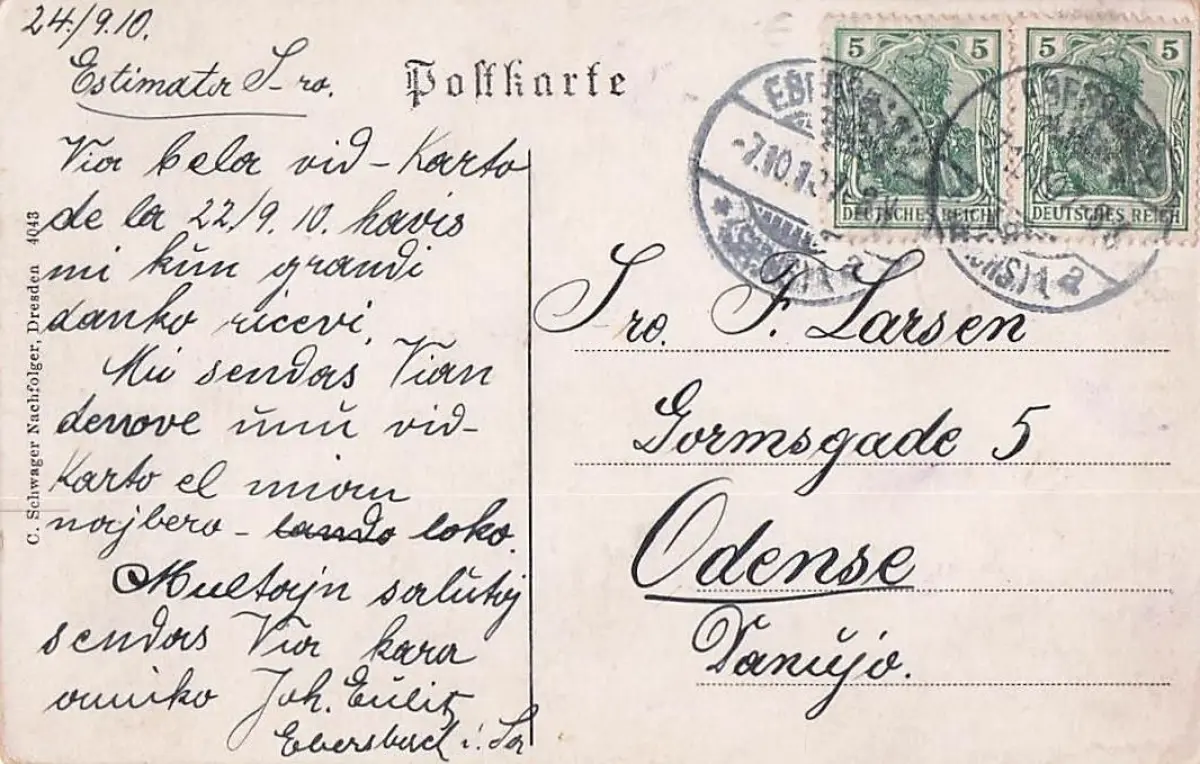 24./9.10.
Estimata S-ro.
Postkarte
Via bela vid-Karto
de la 22/9.10. havis
mi kun grandi
danko ricevi,
Mi sendas Vian
denove unu vid-
Karto el mian
najbero - lando loko.
Multajn salutoj
sendas Via kara
amiko Joh.
Ebersbach i. Sa
C. Schwager Nachfolger, Dresden 4043
5 5 5 5
DEUTSCHES REICH DEUTSCHES REICH
-7.10.10
S-ro. F. Larsen
Gormsgade 5
Odense
Danujo.